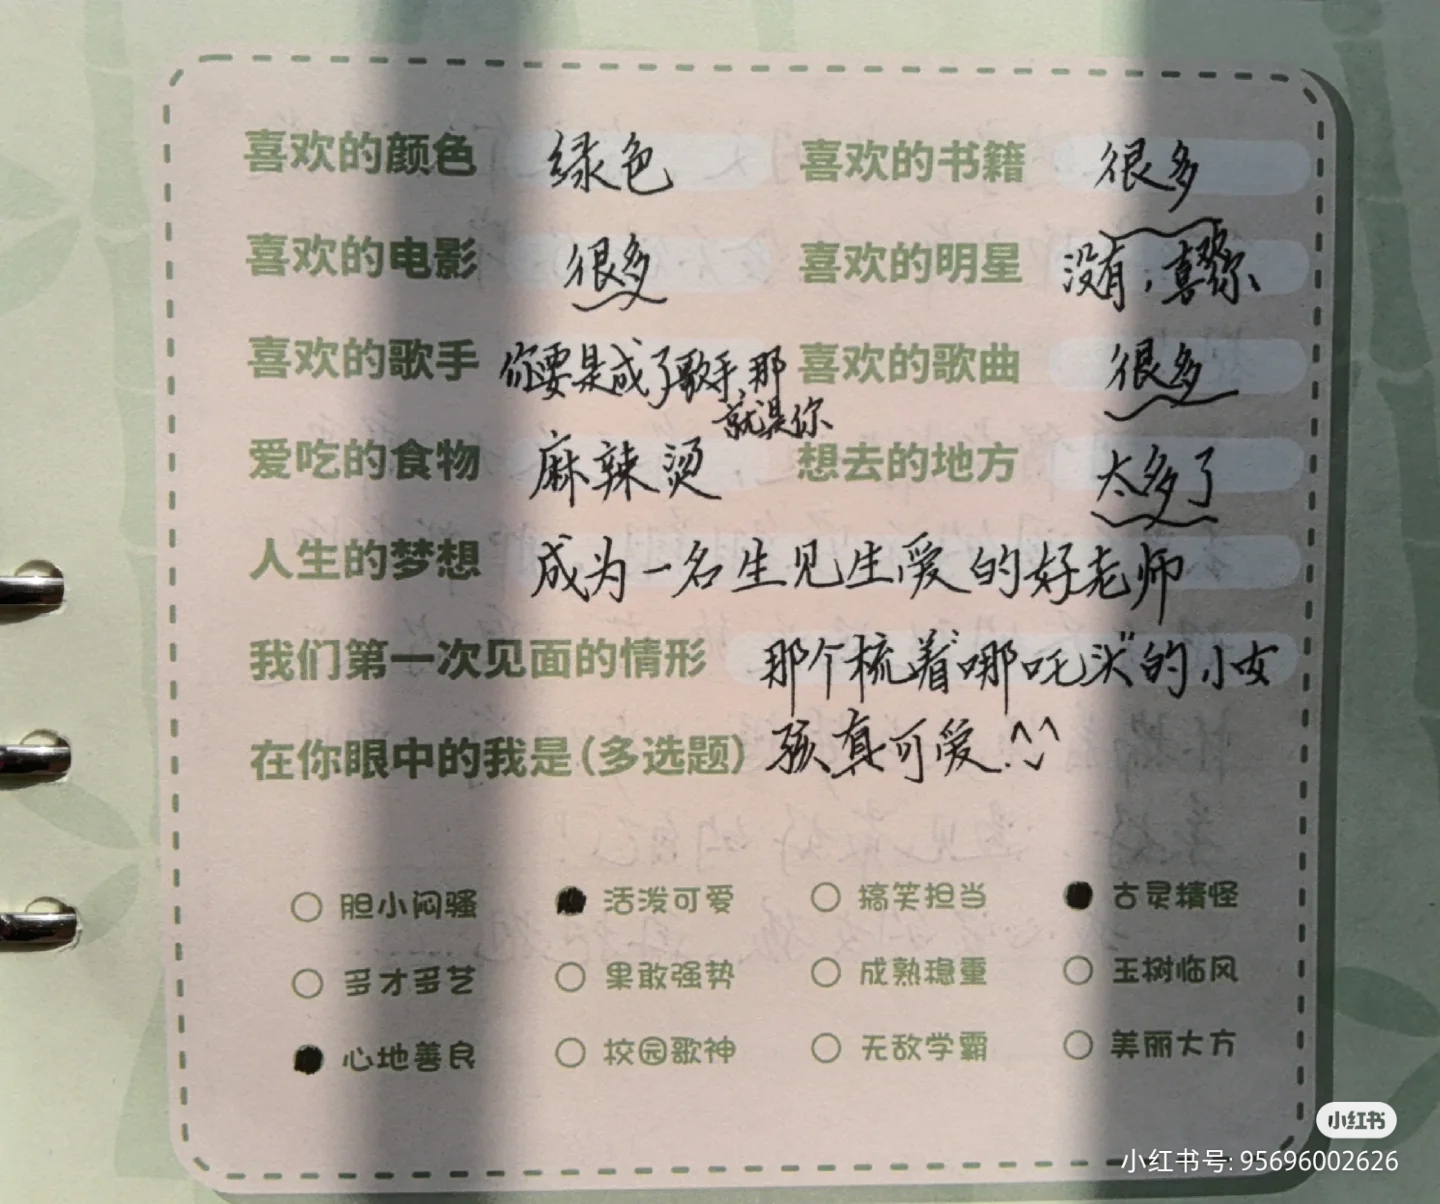 喜欢的颜色 绿色 喜欢的书籍 很多
喜欢的电影 很多 喜欢的明星 没有,喜欢你
喜欢的歌手 你要是成了歌手,那 喜欢的歌曲 很多
就是你
爱吃的食物 麻辣烫 想去的地方 太多了
人生的梦想 成为一名生见生爱的好老师
我们第一次见面的情形 那个梳着“哪吒头”的小女
在你眼中的我是(多选题) 孩真可爱.^^
胆小闷骚 活泼可爱 搞笑担当 古灵精怪
多才多艺 果敢强势 成熟稳重 玉树临风
心地善良 校园歌神 无敌学霸 美丽大方
小红书
小红书号: 95696002626